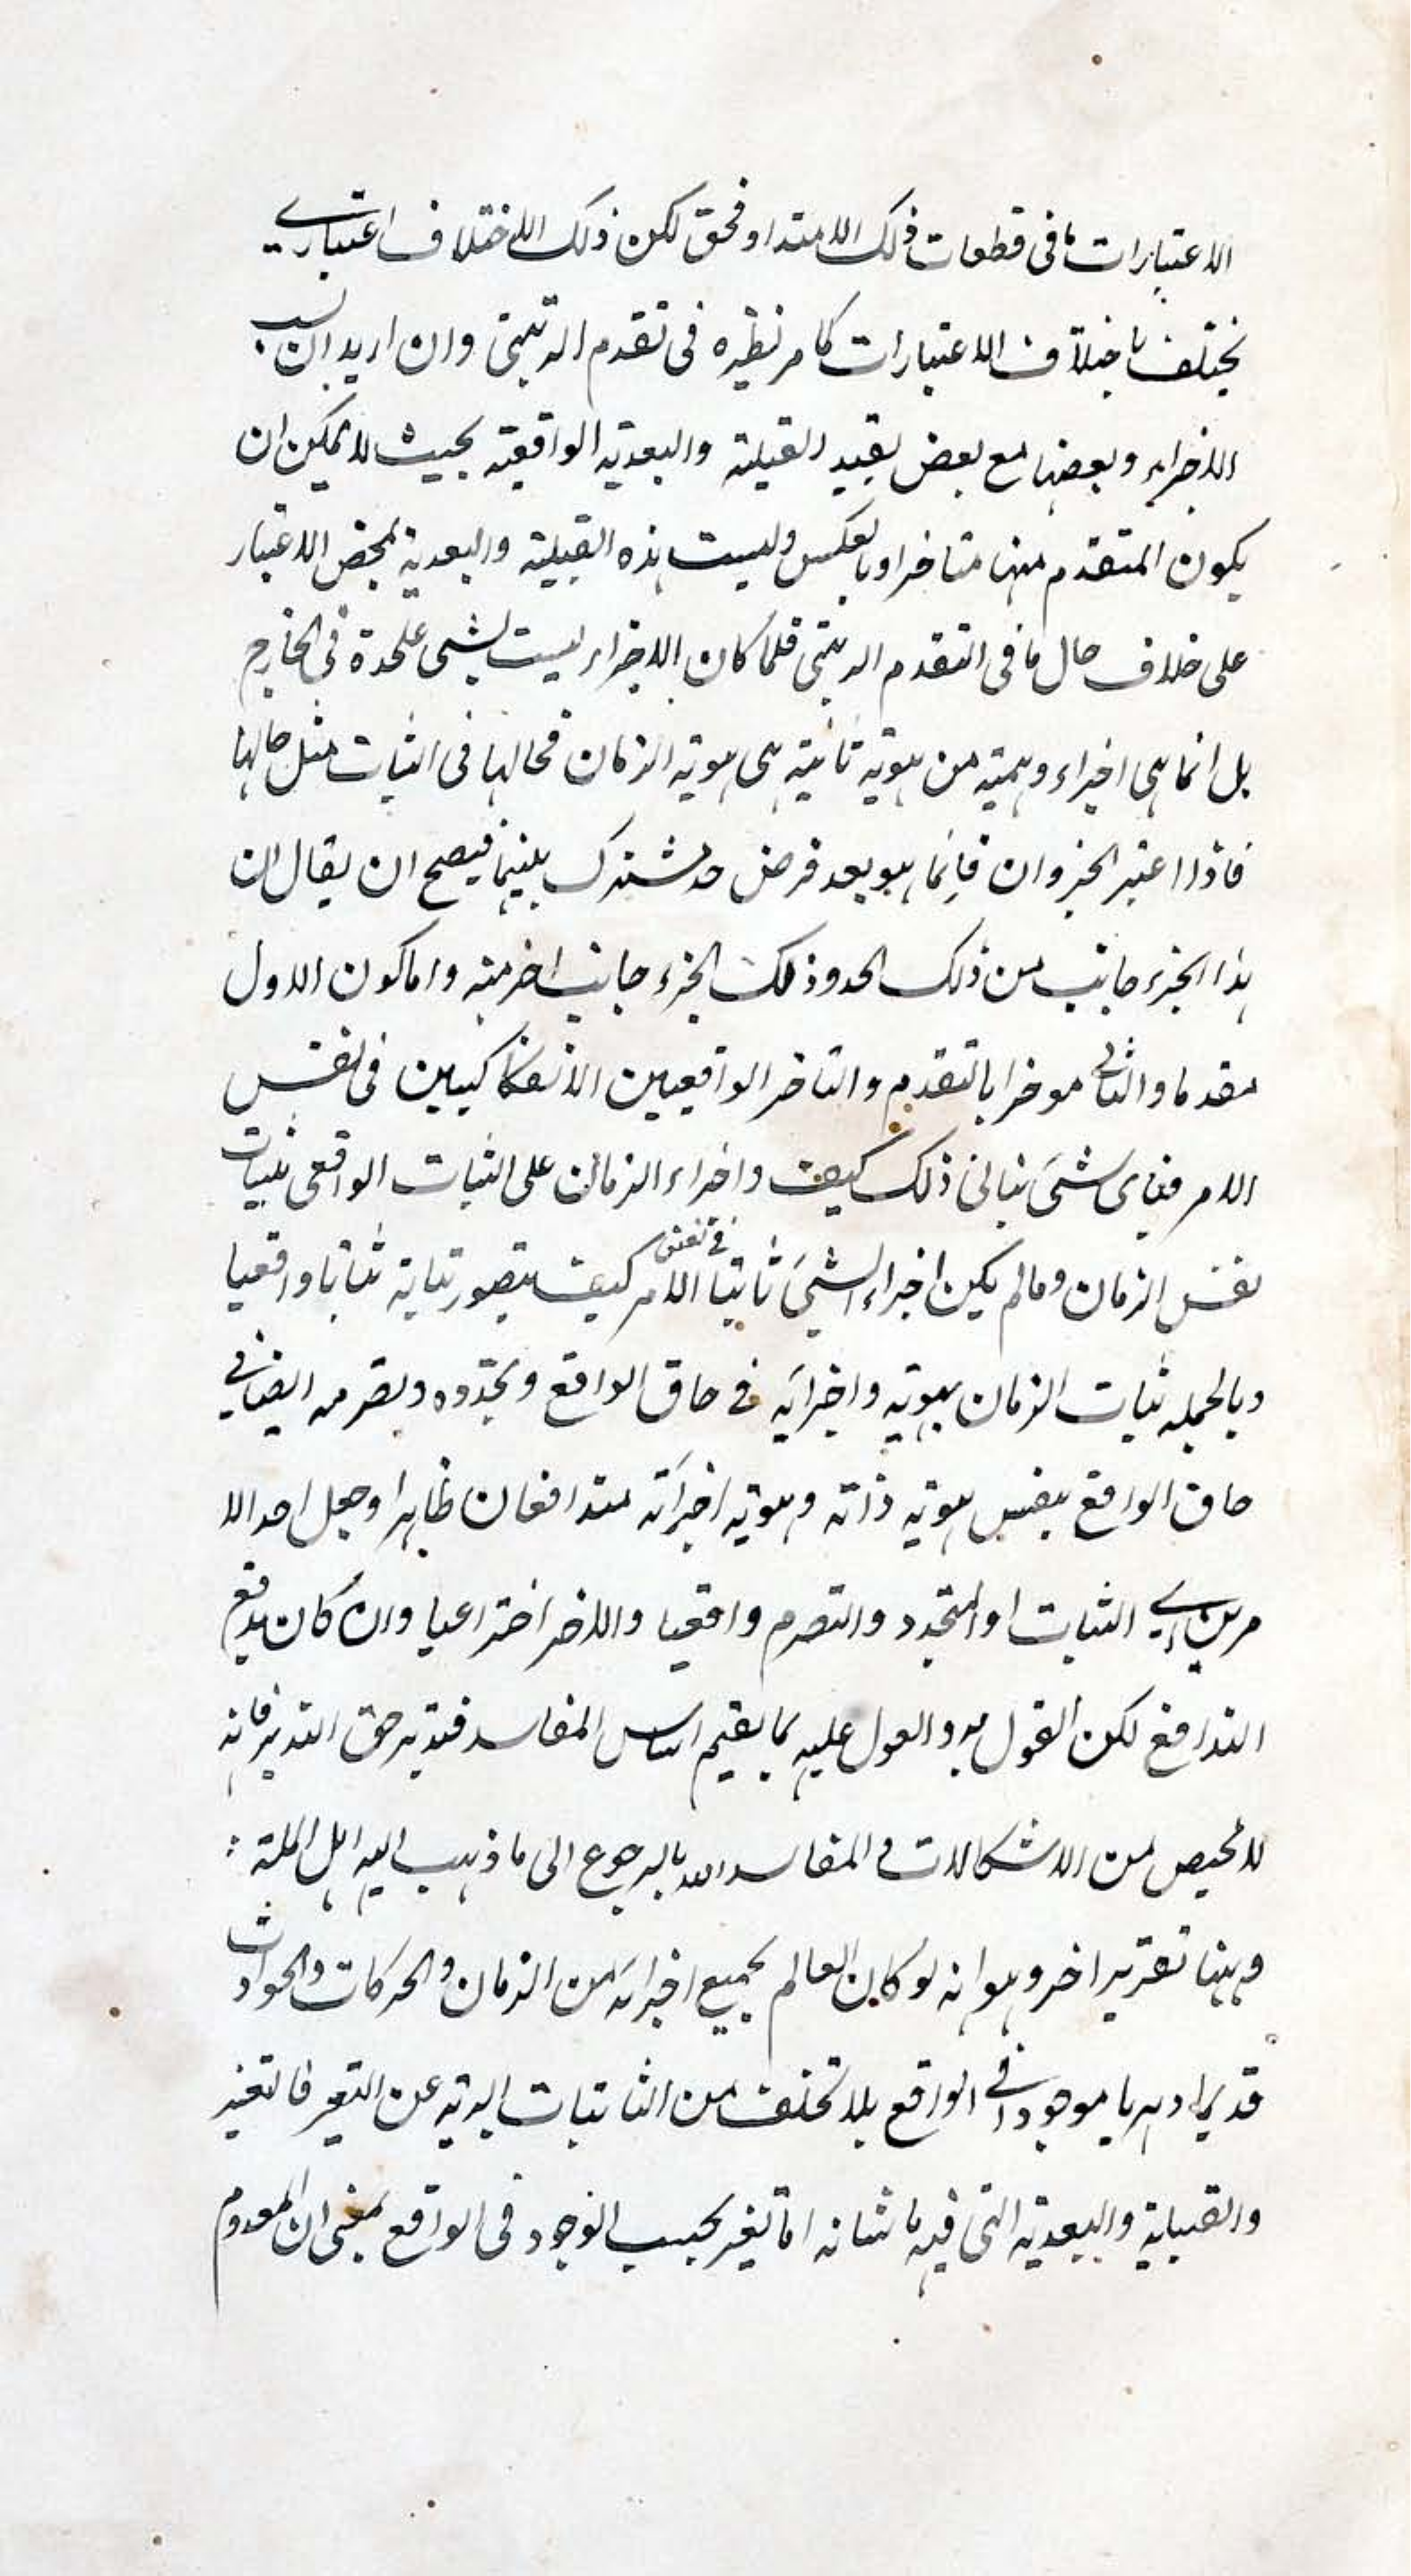 الاعتبارات ما فى قطعات ذلك الامتداد فحق لكن ذلك الاختلاف اعتباري
يختلف باختلاف الاعتبارات كما مر نظيره فى تقدم الرتبتى وان اريد ان نسب
الاجزاء وبعضها مع بعض بقيد القبلية والبعدية الواقعية بحيث لا يمكن ان
يكون المتقدم منها متاخرا وبالعكس وليست هذه القبلية والبعدية بمحض الاعتبار
على خلاف حال ما فى التقدم الرتبتى فلما كان الاجزاء ليست بشى علحدة فى الخارج
بل انما هى اجزاء وهمية من هوية ثانية هى هوية الزمان فحالها فى الثبات مثل حالها
فاذا اعتبر الجزوان فانما هو بعد فرض حد مشترك بينهما فيصح ان يقال ان
هذا الجزء جانب من ذلك الحد وذلك الجزء جانب اخر منه واما كون الاول
مقدما والثانى موخرا بالتقدم والتاخر الواقعيين الانفكاكيين فى نفس
الامر فباى شئ ينالى ذلك كيف واجزاء الزمان على الثبات الواقعى بثبات
نفس الزمان ومالم يكن اجزاء الشئ ثابتا فى نفس الامر كيف يتصور ثباته ثباتا واقعيا
وبالجملة ثبات الزمان بهويته واجزائه فى حاق الواقع وتجدده وتصرمه ايضا فى
حاق الواقع بنفس هوية ذاته وهوية اجزائه متدافعان ظاهرا وجعل احد الا
مرين اي الثبات او التجدد والتصرم واقعيا والاخر اختراعيا وان كان يدفع
التدافع لكن القول به والعول عليه بما يقيم اساس المفاسد فتدبر حق التدبر فانه
لا محيص من الاشكالات و المفاسد الا بالرجوع الى ما ذهب اليه اهل الملة :
وههنا تقرير اخر وهو انه لو كان العالم بجميع اجزائه من الزمان والحركات والحوادث
قديما دهريا موجودا فى الواقع بلا تخلف من الثابتات البرية عن التغير فالتغير
والقبلية والبعدية التى فيه ما شانه اما تغير بحسب الوجود فى الواقع بمعنى ان المعدوم